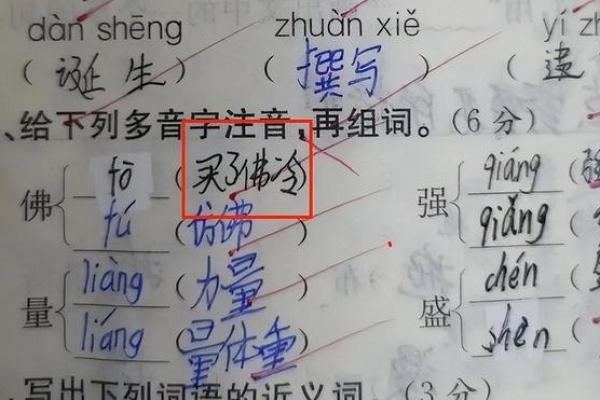 dàn shēng zhuàn xiě yí zh
(诞生) (撰写) (遗
、给下列多音字注音,再组词。(6分)
佛 fō (买了佛冷) 强 qiáng (强
fú (仿佛) qiǎng (
量 liàng (力量) 盛 chén (
liáng (量体重) shèn (
写出下列词语的近义词。(3分)